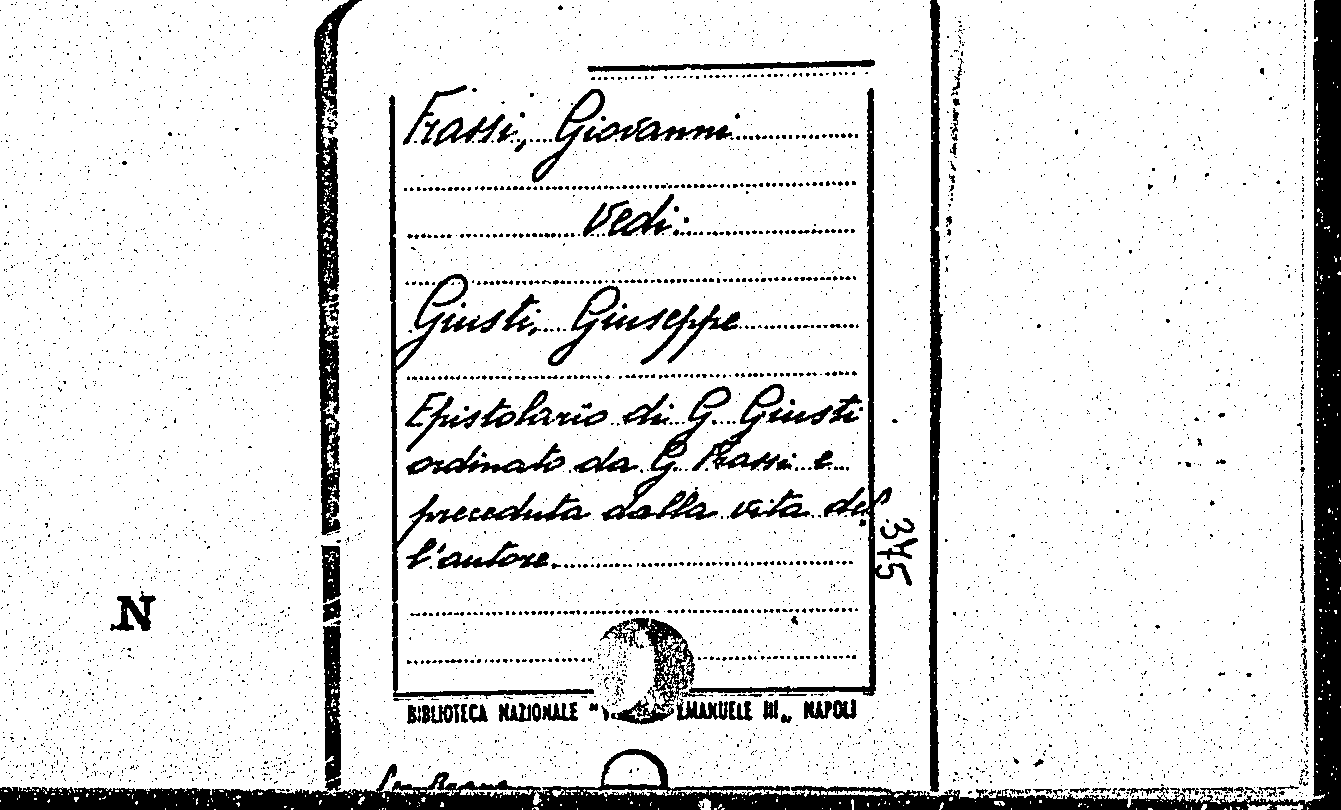 Frassi, Giovanni
Vedi:
Giusti, Giuseppe
Epistolario di G. Giusti
ordinato da G. Frassi e
preceduta dalla vita del
l'autore.
345
N
BIBLIOTECA NAZIONALE " EMANUELE III„ NAPOLI